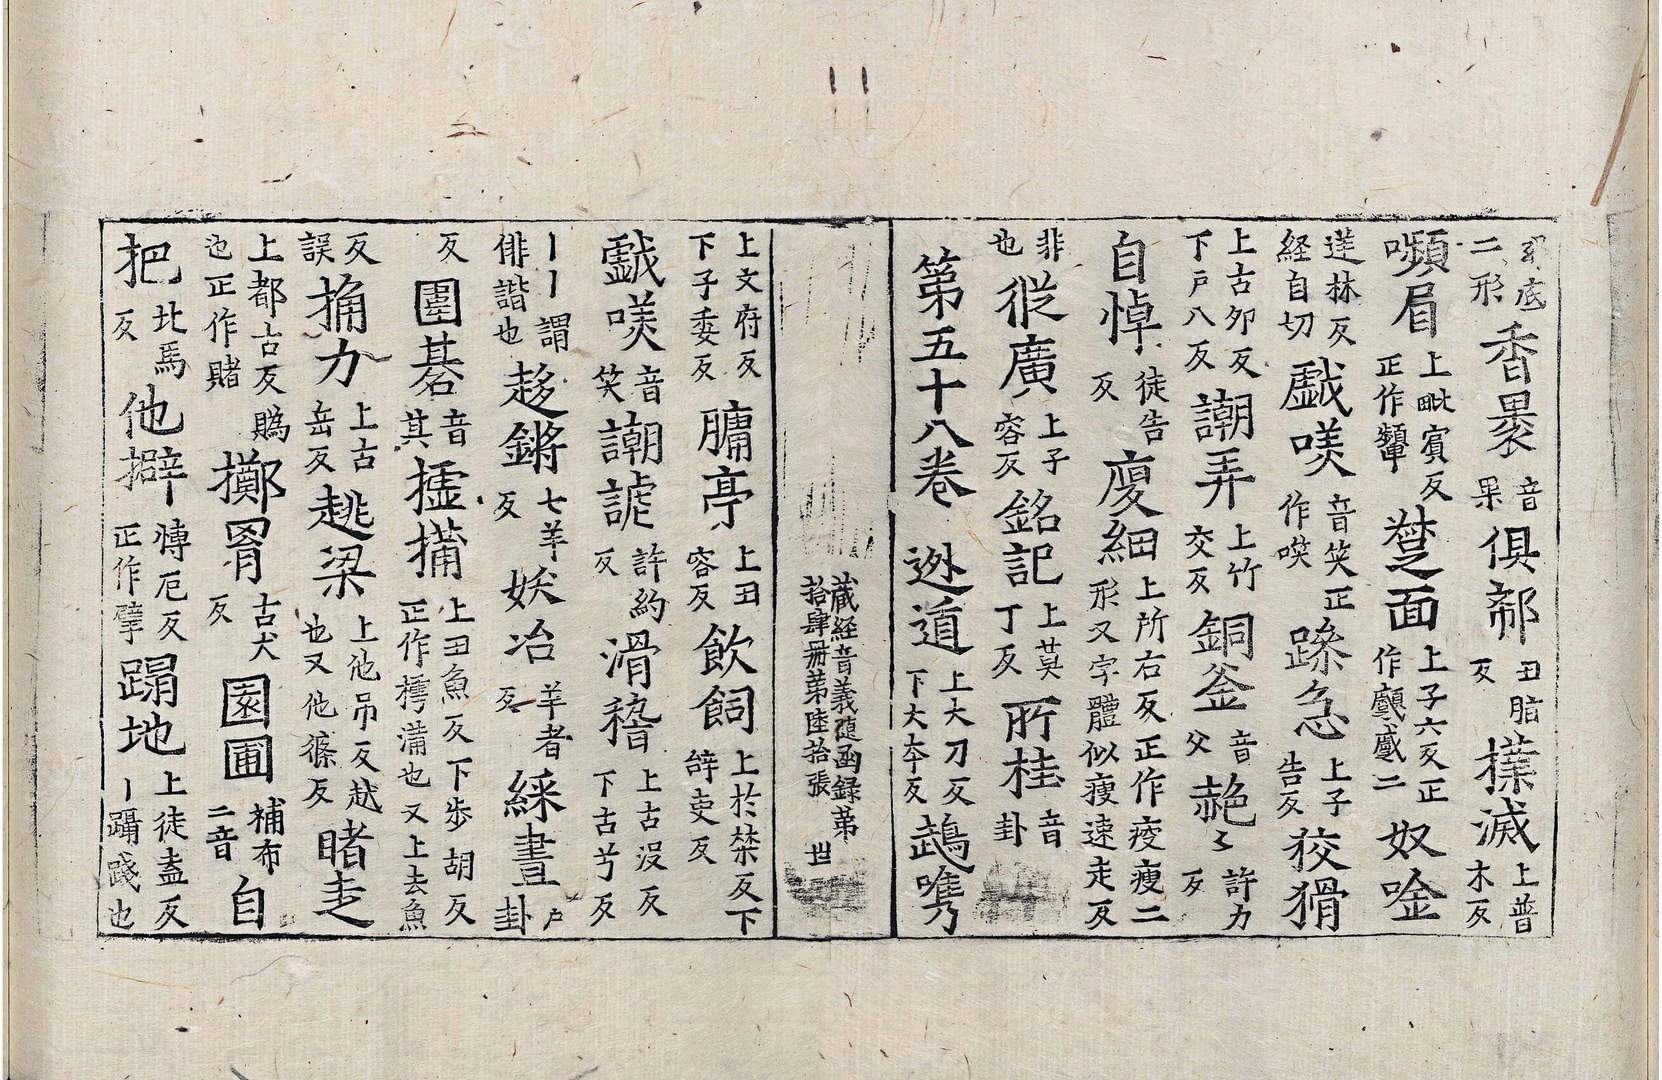 二形香㮯音果俱郗丑脂反檏滅上普木反
嚬眉上毗賓反正作顰蹵面上子六反正作顣蹙二奴唫
経自切戯㗛音笑正作唉躁急上子告反狡猾
上古夘反下戸八反謿弄上竹交反銅釜音父赩許力反
自悼徒告反廋細上所右反正作㾞瘦二形又字體似瘦速走反
非也從廣上子容反銘記上莫丁反所桂音卦
第五十八卷 迯道上大刀反下大夲反鵡㗱
藏経音義随函録苐拾肆册苐陸拾張 世
上文府反下子委反牗亭上丑容反飲飼上扵禁反下辝吏反
戯㗛音笑謿謔許約反滑稽上古没反下古兮反
丨丨謂俳諧也趍鏘七羊反妖冶羊者反綵畫戸卦
反圍碁音其摴㨽上丑魚反下歩胡反正作樗蒲也又上去魚
反誤捔力上古岳反趒梁上他吊反越也又他篠反賭走
上都古反賭也正作賭擲罥古犬反園圃補布二音自
把北馬反他擗愽厄反正作擘蹋地上徒盍反丨躡踐也